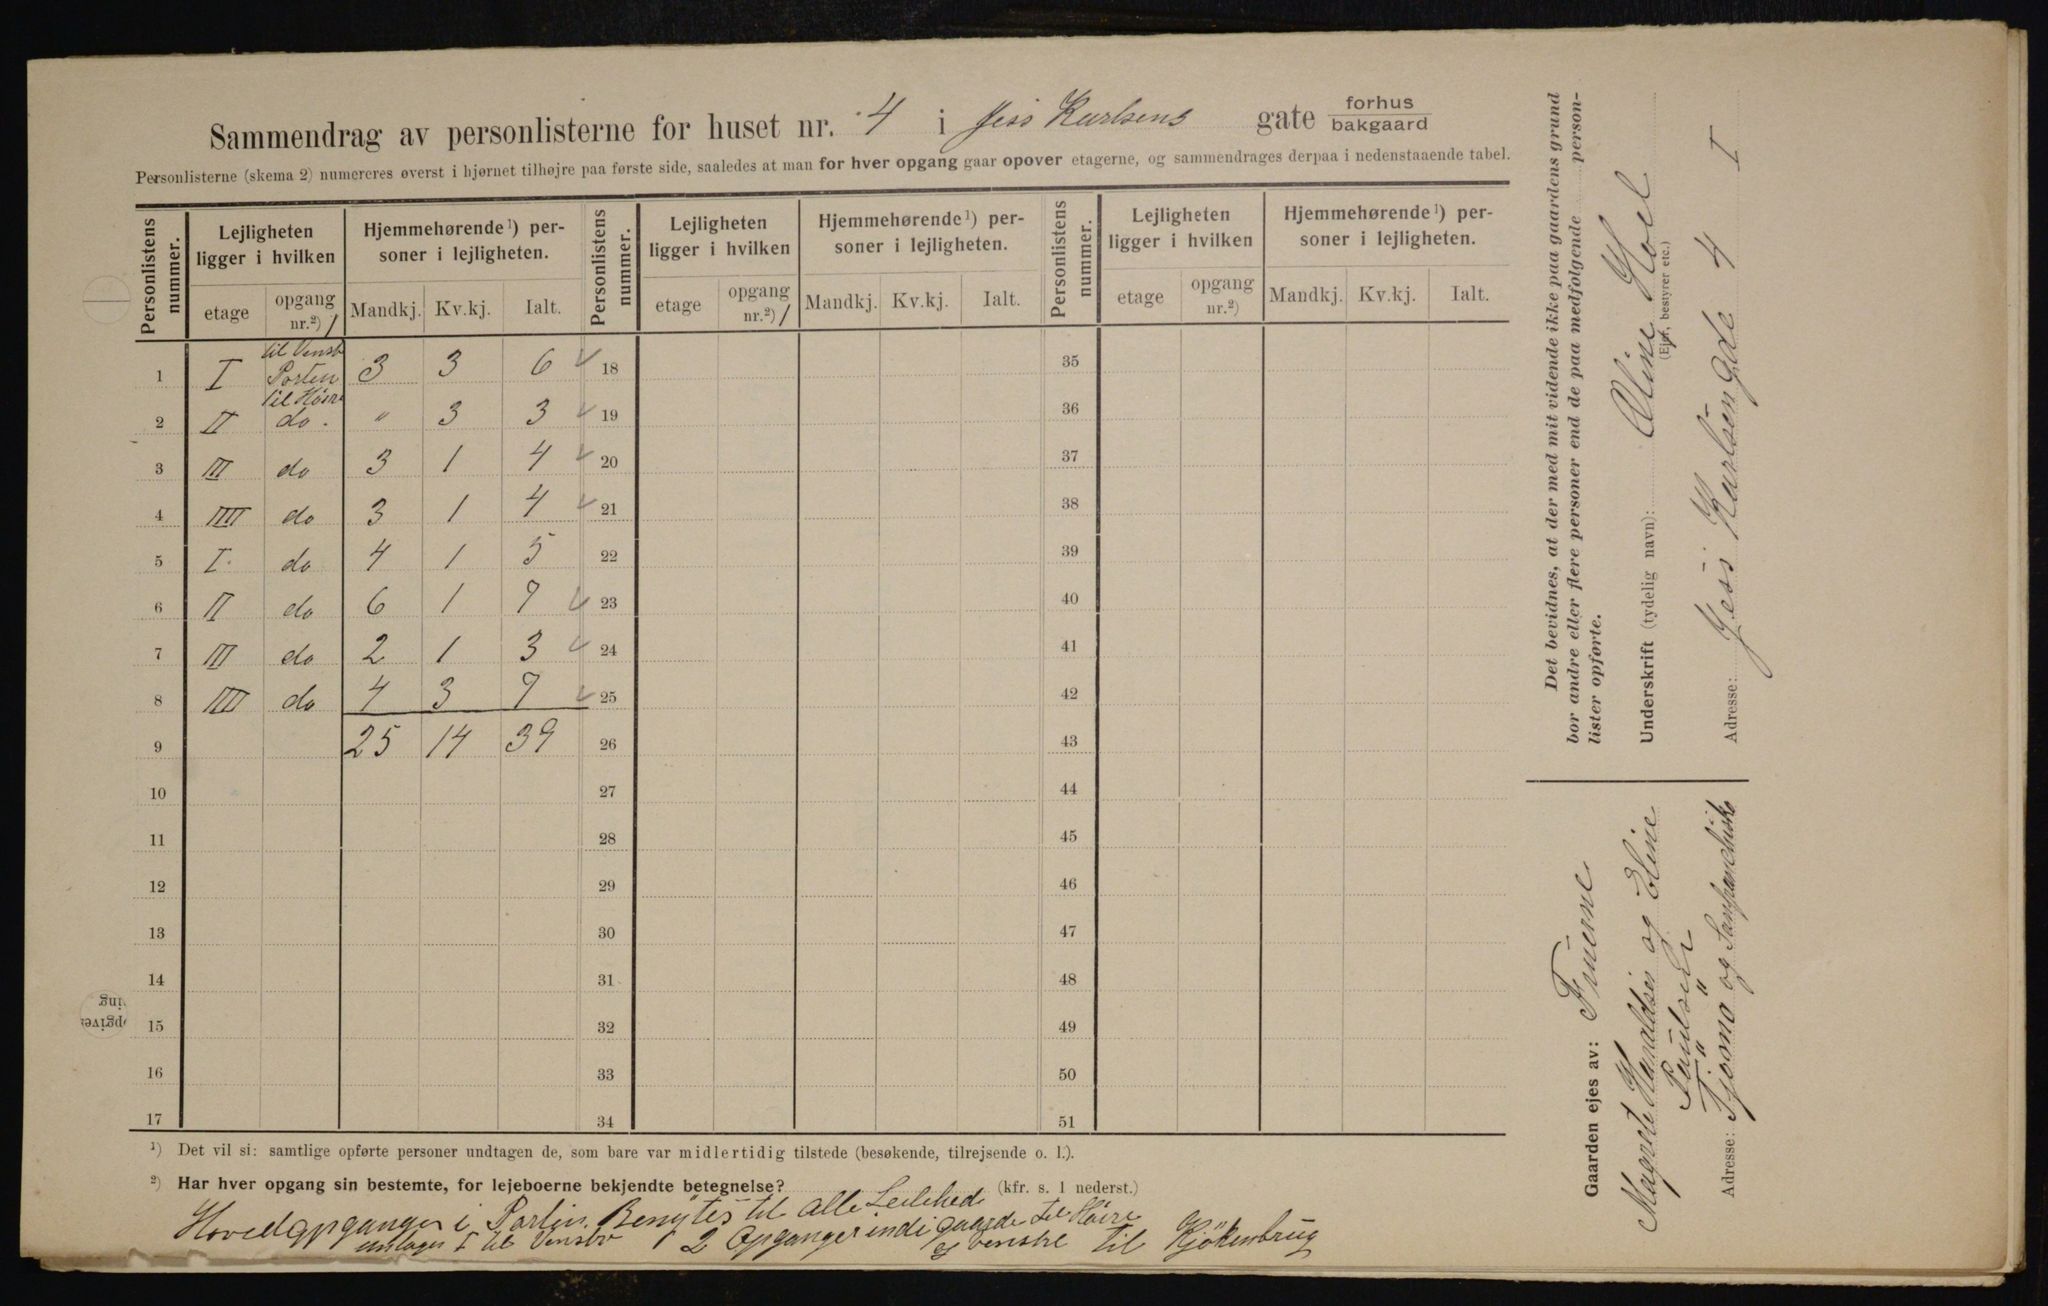 Sammendrag av personlisterne for huset nr. 4 i Jess Karlsens gate forhus
bakgaard
Personlisterne (skema 2) numereres øverst i hjørnet tilhøjre paa første side, saaledes at man for hver opgang gaar opover etagerne, og sammendrages derpaa i nedenstaaende tabel.
Personlistens nummer. Lejligheten ligger i hvilken Hjemmehørende¹) personer i lejligheten. Personlistens nummer. Lejligheten ligger i hvilken Hjemmehørende¹) personer i lejligheten. Personlistens nummer. Lejligheten ligger i hvilken Hjemmehørende¹) personer i lejligheten.
etage opgang nr.²) 1 Mandkj. Kv.kj. Ialt. etage opgang nr.²) 1 Mandkj. Kv.kj. Ialt. etage opgang nr.²) Mandkj. Kv.kj. Ialt.
til Venstr
1 I Porten 3 3 6 18 35
til Høire
2 II do. " 3 3 19 36
3 III do 3 1 4 20 37
4 IIII do 3 1 4 21 38
5 I do 4 1 5 22 39
6 II do 6 1 7 23 40
7 III do 2 1 3 24 41
8 IIII do 4 3 7 25 42
9 25 14 39 26 43
10 27 44
11 28 45
12 29 46
13 30 47
14 31 48
15 32 49
16 33 50
17 34 51
¹) Det vil si: samtlige opførte personer undtagen de, som bare var midlertidig tilstede (besøkende, tilrejsende o. l.).
²) Har hver opgang sin bestemte, for lejeboerne bekjendte betegnelse? (kfr. s. 1 nederst.)
Hovedopganger i Porten Benyttes til alle Leilihed
untager I til Venstr 2 Opganger indi gaarde til Høire
og venstre til Kjøkenbrug
Det bevidnes, at der med mit vidende ikke paa gaardens grund
bor andre eller flere personer end de paa medfølgende person-
lister opførte.
Underskrift (tydelig navn): Oline Hoel
(Ejer, bestyrer etc.)
Adresse: Jess Karlsen gde 4 I
Gaarden ejes av: Fruerne
Magrete Haraldsen og Eline
Paulsen
Adresse: Tjømø og Sanfranchisko